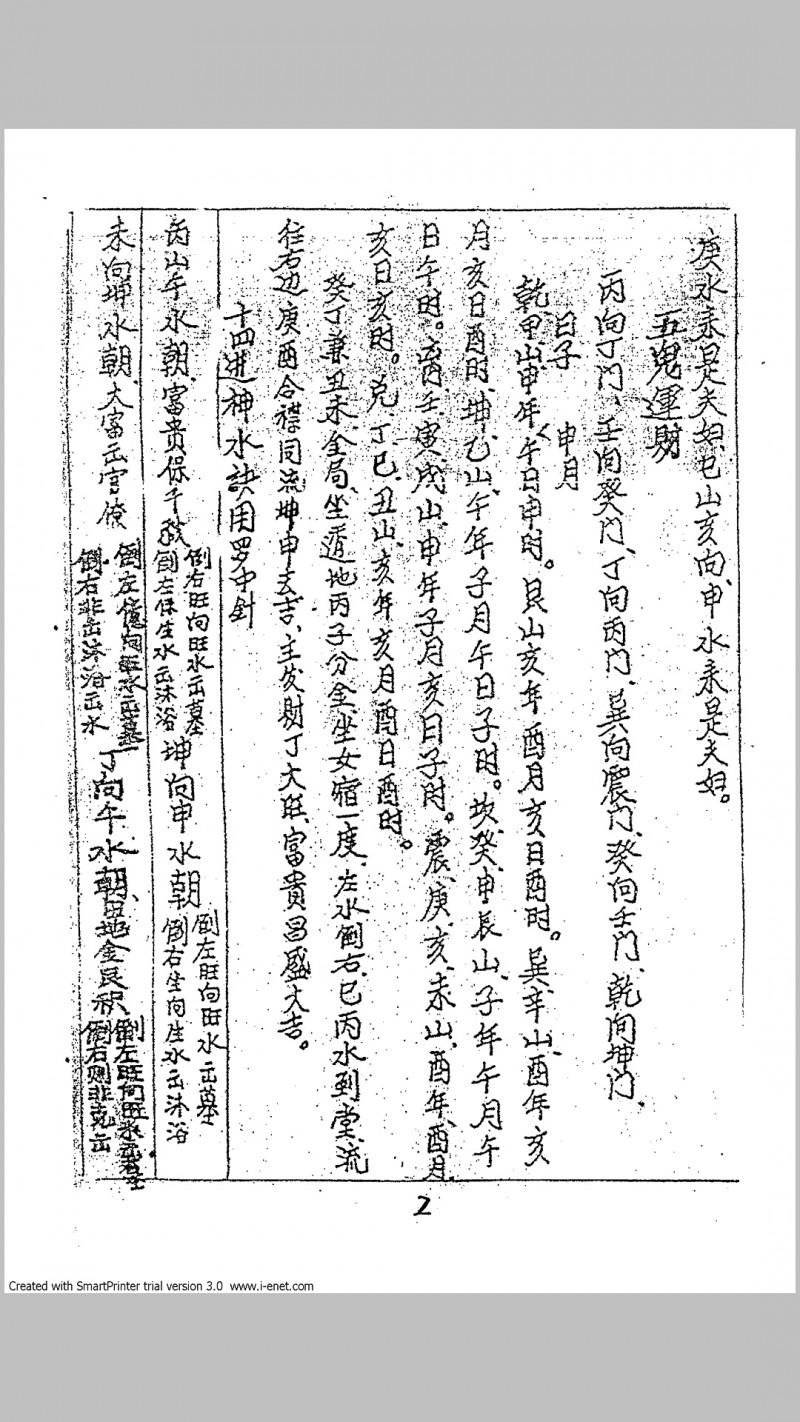 庚水来是夫妇、巳山亥向、申水来是夫妇。
五鬼運財
丙向丁门、壬向癸门、丁向丙门、巽向震门、癸向壬门、乾向坤门、
日子 申月
乾、甲山、申年、午日申时。艮山亥年酉月亥日酉时。巽、辛山、酉年亥
月亥日酉时、坤、乙山、午年子月午日子时。坎、癸、申辰山、子年午月午
日午时。离、壬、寅、戌山、申年子月亥日子时。震、庚、亥、未山、酉年、酉月、
亥日亥时。兑、丁巳、丑山、亥年亥月酉日酉时。
癸丁兼丑未、全局、坐遁地丙子分金、坐女宿一度、左水倒右、巳丙水到堂、流
往右边庚酉合襟同流坤申去吉、主发财丁大旺、富貴昌盛大吉。
十四进神水訣用罗中針
丙山午水朝、富貴保千秋
倒右旺向旺水出墓
倒左保生水出沐浴
坤向申水朝
倒左旺向旺水出墓
倒右生向生水出沐浴
未向坤水朝、大富出官僚
倒左億向旺水出墓
倒右非出沐浴出水
丁向午水朝、田地金民积
倒左旺向旺水出墓
倒右则非克出
2
Created with SmartPrinter trial version 3.0 www.i-enet.com